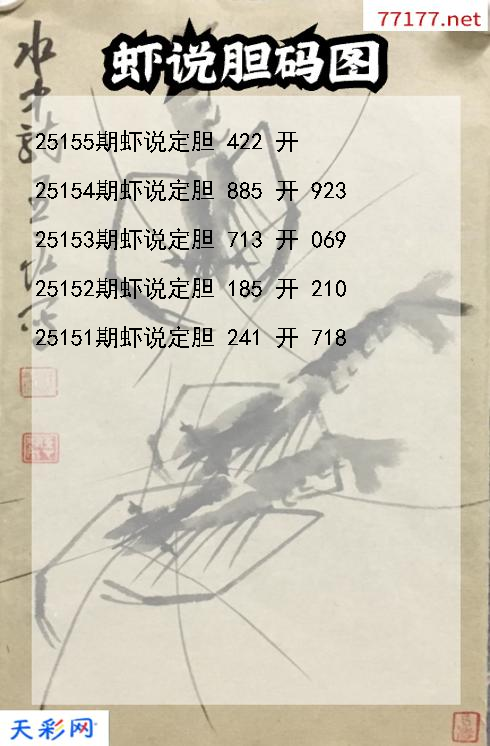 77177.net
虾说胆码图
25155期虾说定胆 422 开
25154期虾说定胆 885 开 923
25153期虾说定胆 713 开 069
25152期虾说定胆 185 开 210
25151期虾说定胆 241 开 718
天彩网